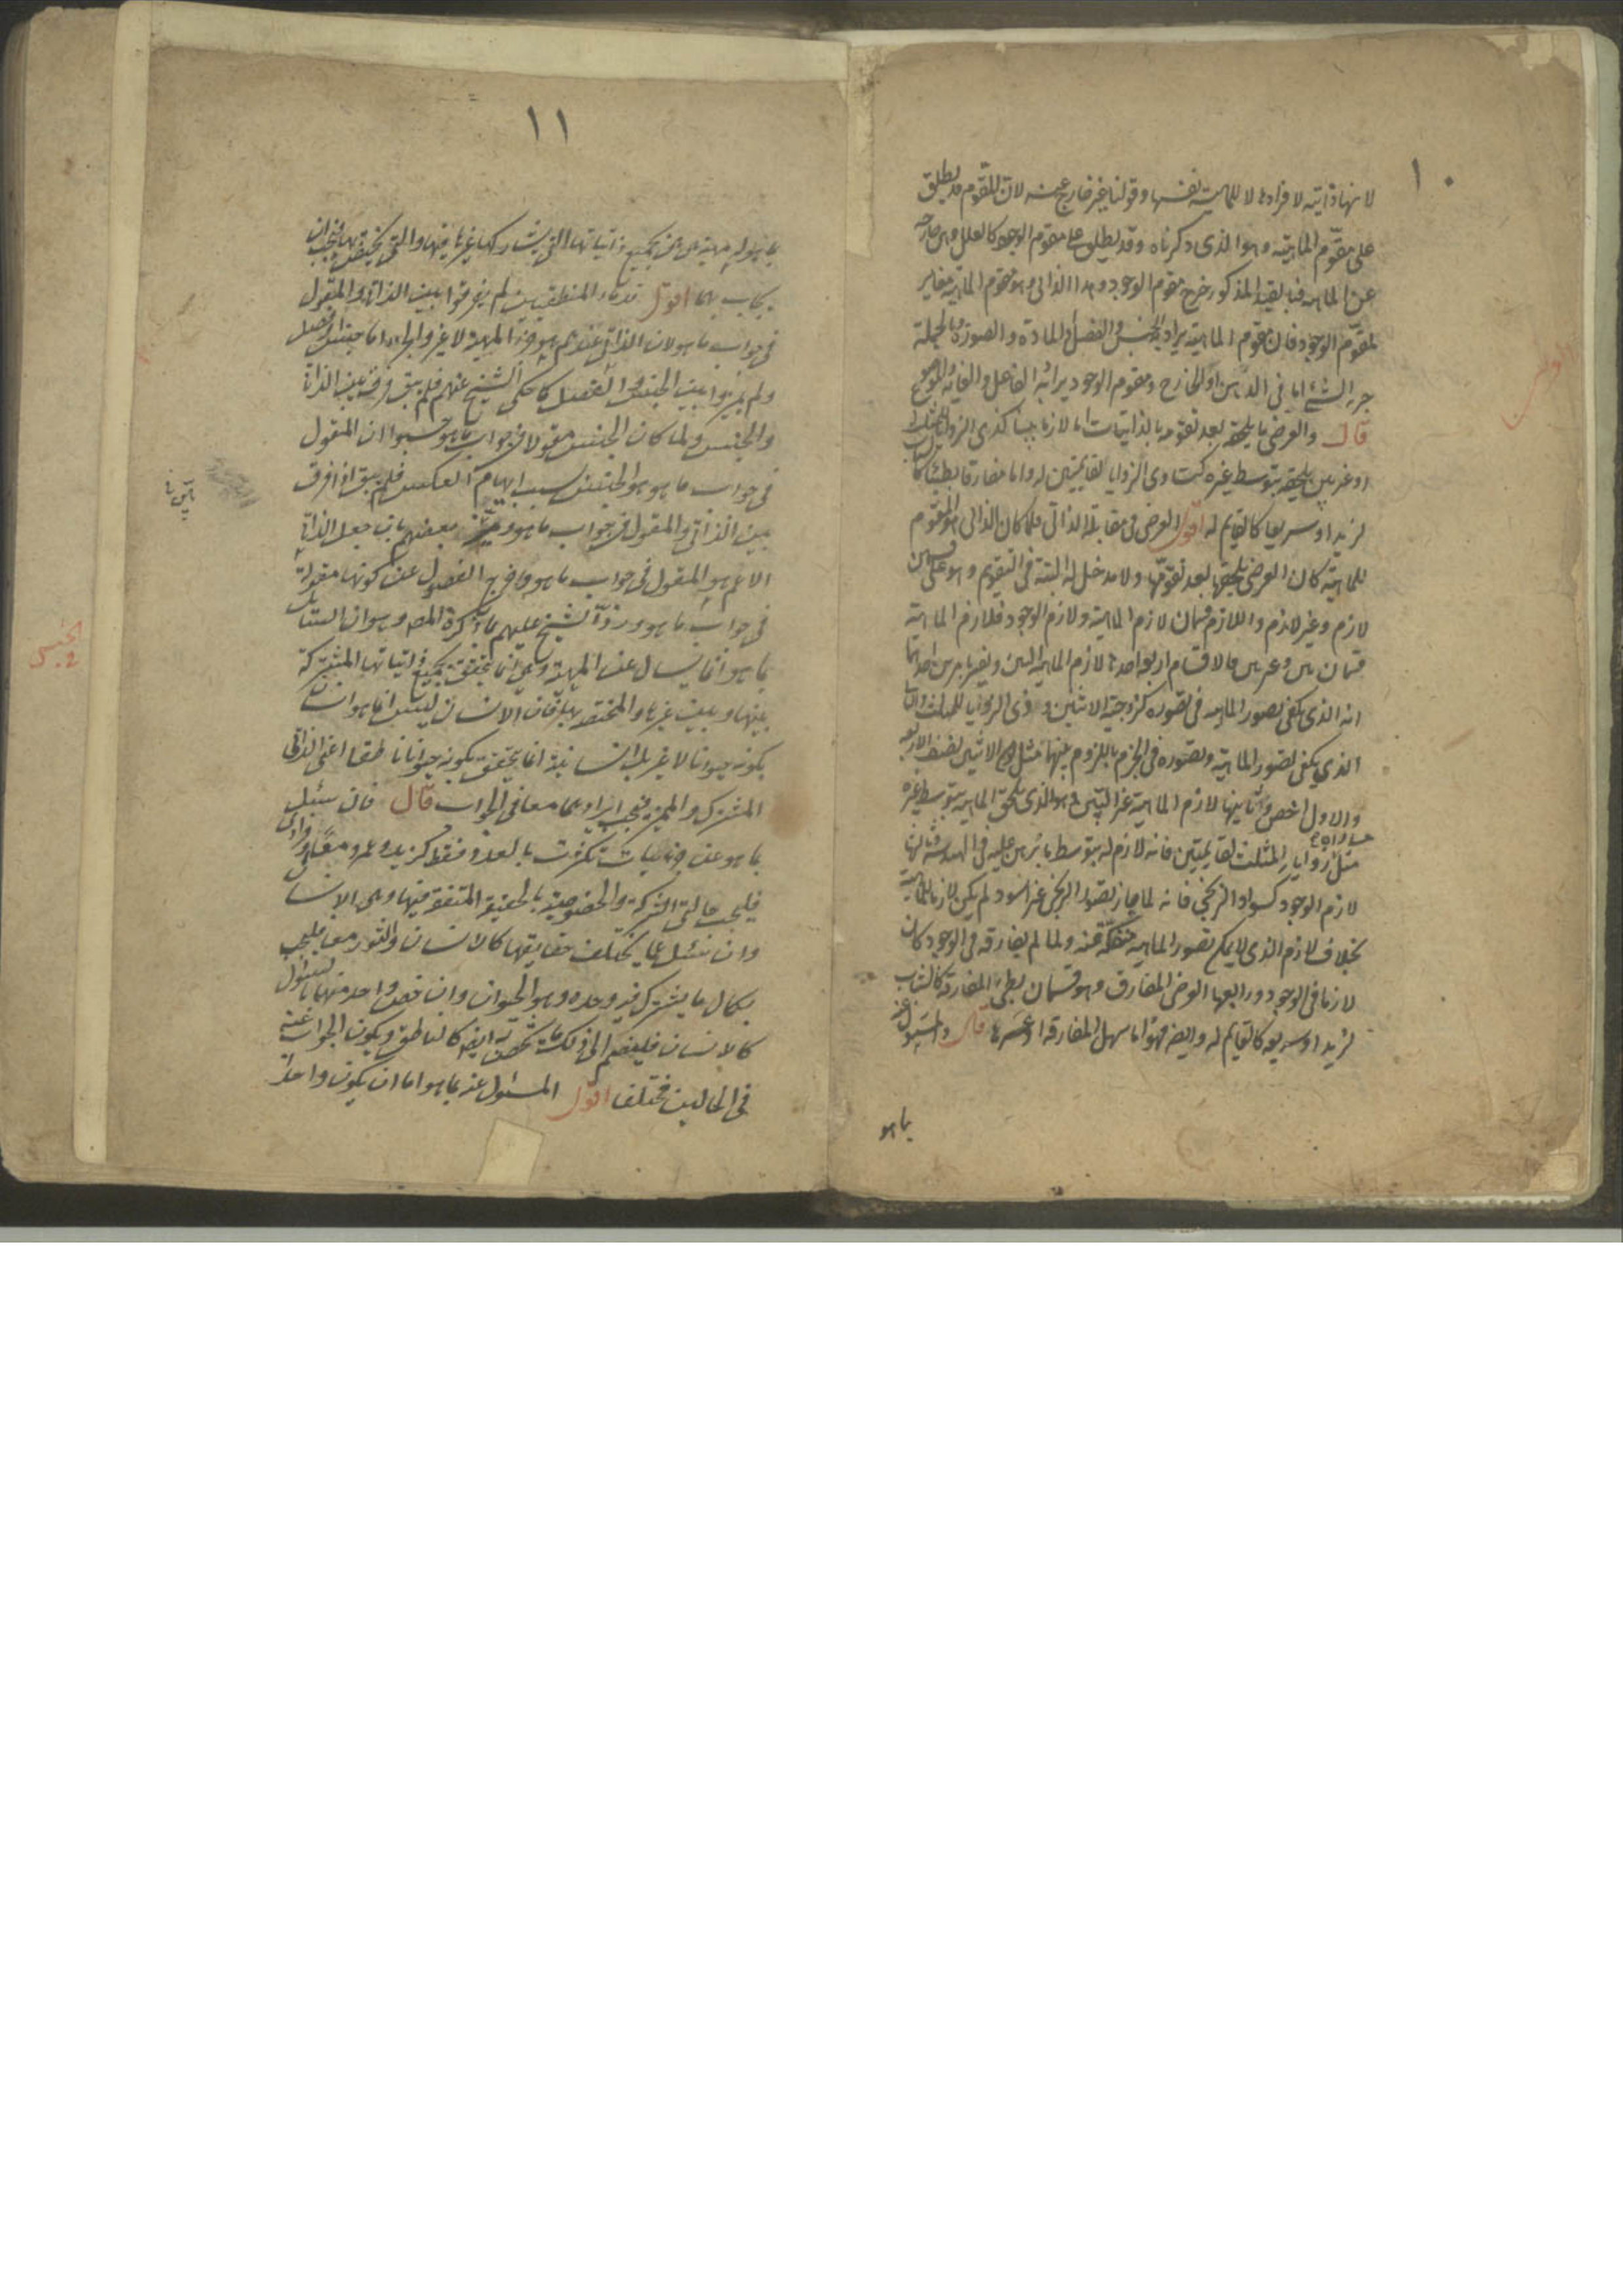 ١٠
لانها ذاتية لافرادها لا للماهية نفسها وقولنا غير خارج عنه لان المقوم قد يطلق
على مقوّم الماهية وهو الذى ذكرناه وقد يطلق على مقوم الوجود كالعلل وهى خارجة
عن الماهية فبالقيد المذكور خرج مقوم الوجود وهذا الذاتى وهو مقوم الماهية مغاير
لمقوّم الوجود فان مقوم الماهية يراد به الجنس والفصل والمادة والصورة وبالجملة
جزء الشىء اما فى الذهن او الخارج ومقوم الوجود يراد به الفاعل والغاية والموضوع
قال والعرضى ما يلحقه بعد تقومه بالذاتيات اما لازما بينا كذى الزوايا للمثلث
او غير بين يلحقه بتوسط غيره كتساوى الزوايا لقائمتين له واما مفارقا بطيئا كالشباب
لزيد او سريعا كالقايم له اقول العرضى فى مقابلة الذاتى فلما كان الذاتى هو المقوم
للماهية كان العرضى يلحقها بعد تقوّمها ولا مدخل له البتة فى التقويم وهو على قسمين
لازم وغير لازم واللازم قسمان لازم الماهية ولازم الوجود فلازم الماهية
قسمان بين وغير بين فالاقسام اربعة احدها لازم الماهية البين ويفسر بامرين احدهما
انه الذى يكفى تصور الماهية فى تصوره كزوجية الاثنين وذى الزوايا للمثلث والثانى
الذى يكفى تصور الماهية وتصوره فى الجزم باللزوم بينهما مثل الاثنين نصف الاربعة
والاول اخص وثانيها لازم الماهية غير البيّن وهو الذى يلحق الماهية بتوسط غيره
مساواة
مثل زوايا المثلث لقايمتين فانه لازم له بتوسط ما برهن عليه فى الهندسة وثالثها
لازم الوجود كسواد الزنجى فانه لما جاز تصور الزنجى غير اسود لم يكن لازما للماهية
بخلاف لازم الذى لا يمكن تصور الماهية منفكّة عنه ولما لم يفارقه فى الوجود كان
لازما فى الوجود ورابعها العرضى المفارق وهو قسمان بطىء المفارقة كالشباب
لزيد او سريعه كالقايم له وايضا فهو اما سهل المفارقة او عسرها قال والمسئول عنه
بما هو
١١
بما هو له مهية هى هى بجميع ذاتياتها التى يشاركها غيرها فيها والتى يختص بها فيجب ان
يجاب بها اقول قدماء المنطقيين لم يفرقوا بين الذاتى والمقول
فى جواب ما هو لان الذاتى عندهم هو جزء المهية لا غير والجزء اما جنس او فصل
ولم يميزوا بين الجنس والفصل كما حكى الشيخ عنهم فلم يبق فرق بين الذاتى
والجنس ولما كان الجنس مقولا فى جواب ما هو حسبوا ان المقول
فى جواب ما هو هو الجنس بسبب ايهام العكس فلم يبق اذا فرق
بين الذاتى والمقول فى جواب ما هو وميّز بعضهم بان جعل الذاتى
الاعم هو المقول فى جواب ما هو واخرج الفصول عن كونها مقولة
فى جواب ما هو وردّ الشيخ عليهم بما ذكره المص وهو ان السائل
بما هو انما يسال عن المهية وهى انما تتحقق بجميع ذاتياتها المشتركة
بينها وبين غيرها والمختصة بها فان الانسان ليس انما هو انسان
بكونه حيوانا لا غير بل انسانية انما يتحقق بكونه حيوانا ناطقا اعنى الذاتى
المشترك والمميز فيجب ايرادهما معا فى الجواب قال فان سئل
بما هو عن جزئيات تكثرت بالعدد فقط كزيد وعمرو معا وفرادى
فليجب حالتى الشركة والخصوصية بالحقيقة المتفقة فيها وهى الانسان
وان سئل عما يختلف حقايقها كالانسان والثور معا فليجب
بكمال ما يشترك فيه وحده وهو الحيوان وان خص واحد منهما بالسئوال
كالانسان فليضم الى ذلك ما يختص به ايضا كالناطق ويكون الجواب عنه
فى الحالين مختلف اقول المسئول عنه بما هو اما ان يكون واحدا